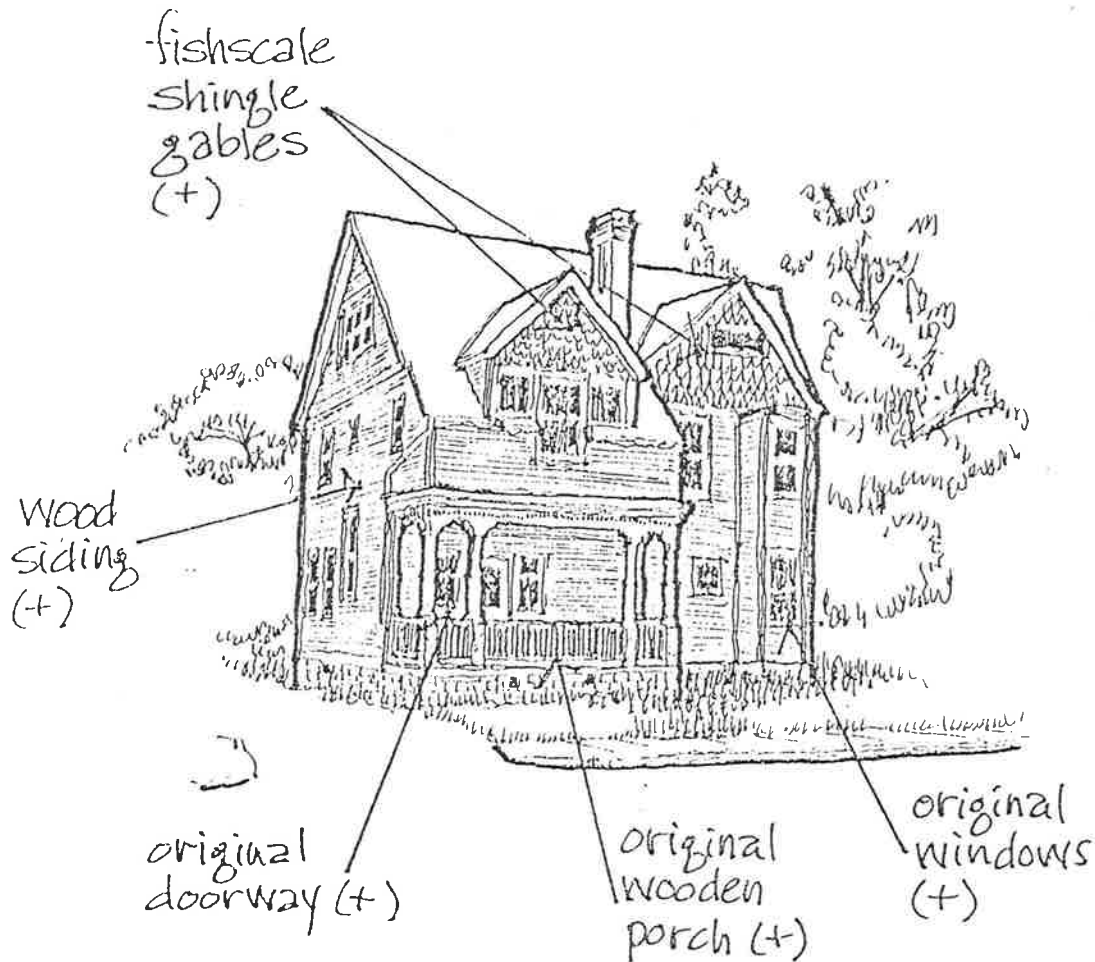 fishscale
shingle
gables
(+)
wood
siding
(+)
original
doorway (+)
original
wooden
porch (+)
original
windows
(+)